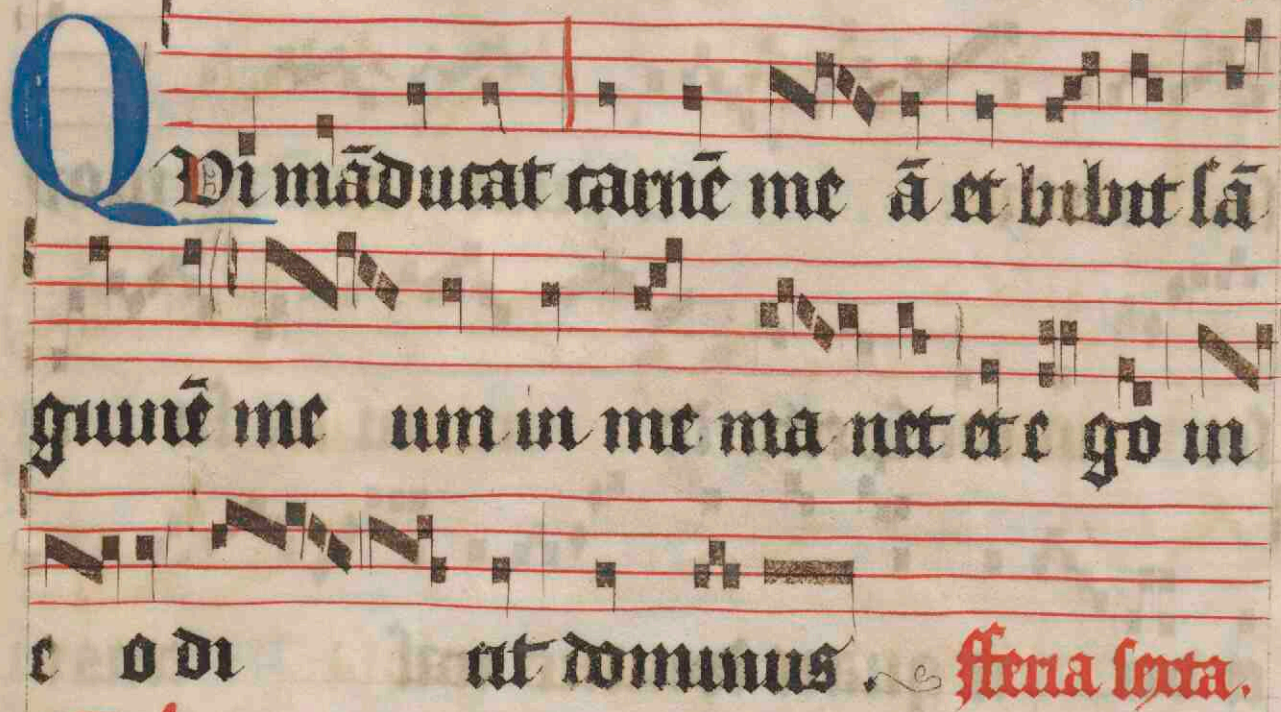 QVi mãducat carnẽ me ã et bibit sã
guinẽ me um in me ma net et e go in
e o di cit dominus . fferia sexta.